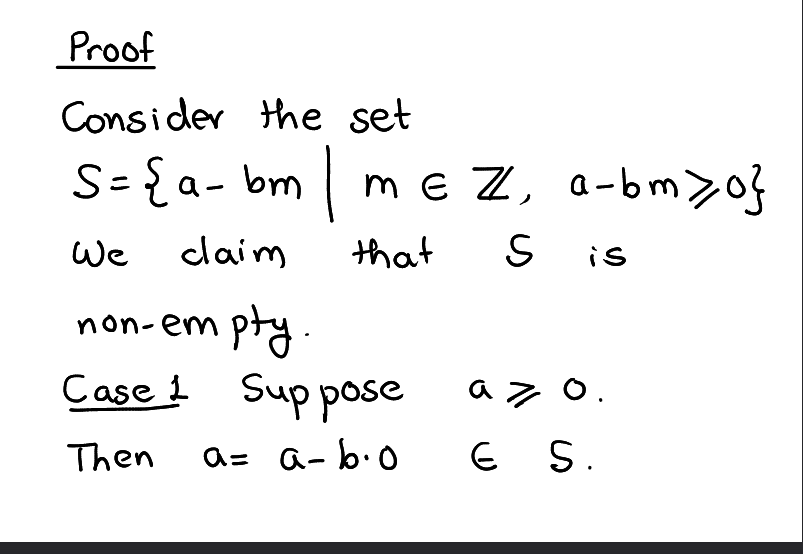 Proof
Consider the set
S={a- bm | m ∈ ℤ, a-bm⩾0}
We claim that S is
non-empty.
Case 1 Suppose a ⩾ 0.
Then a= a-b·0 ∈ S.